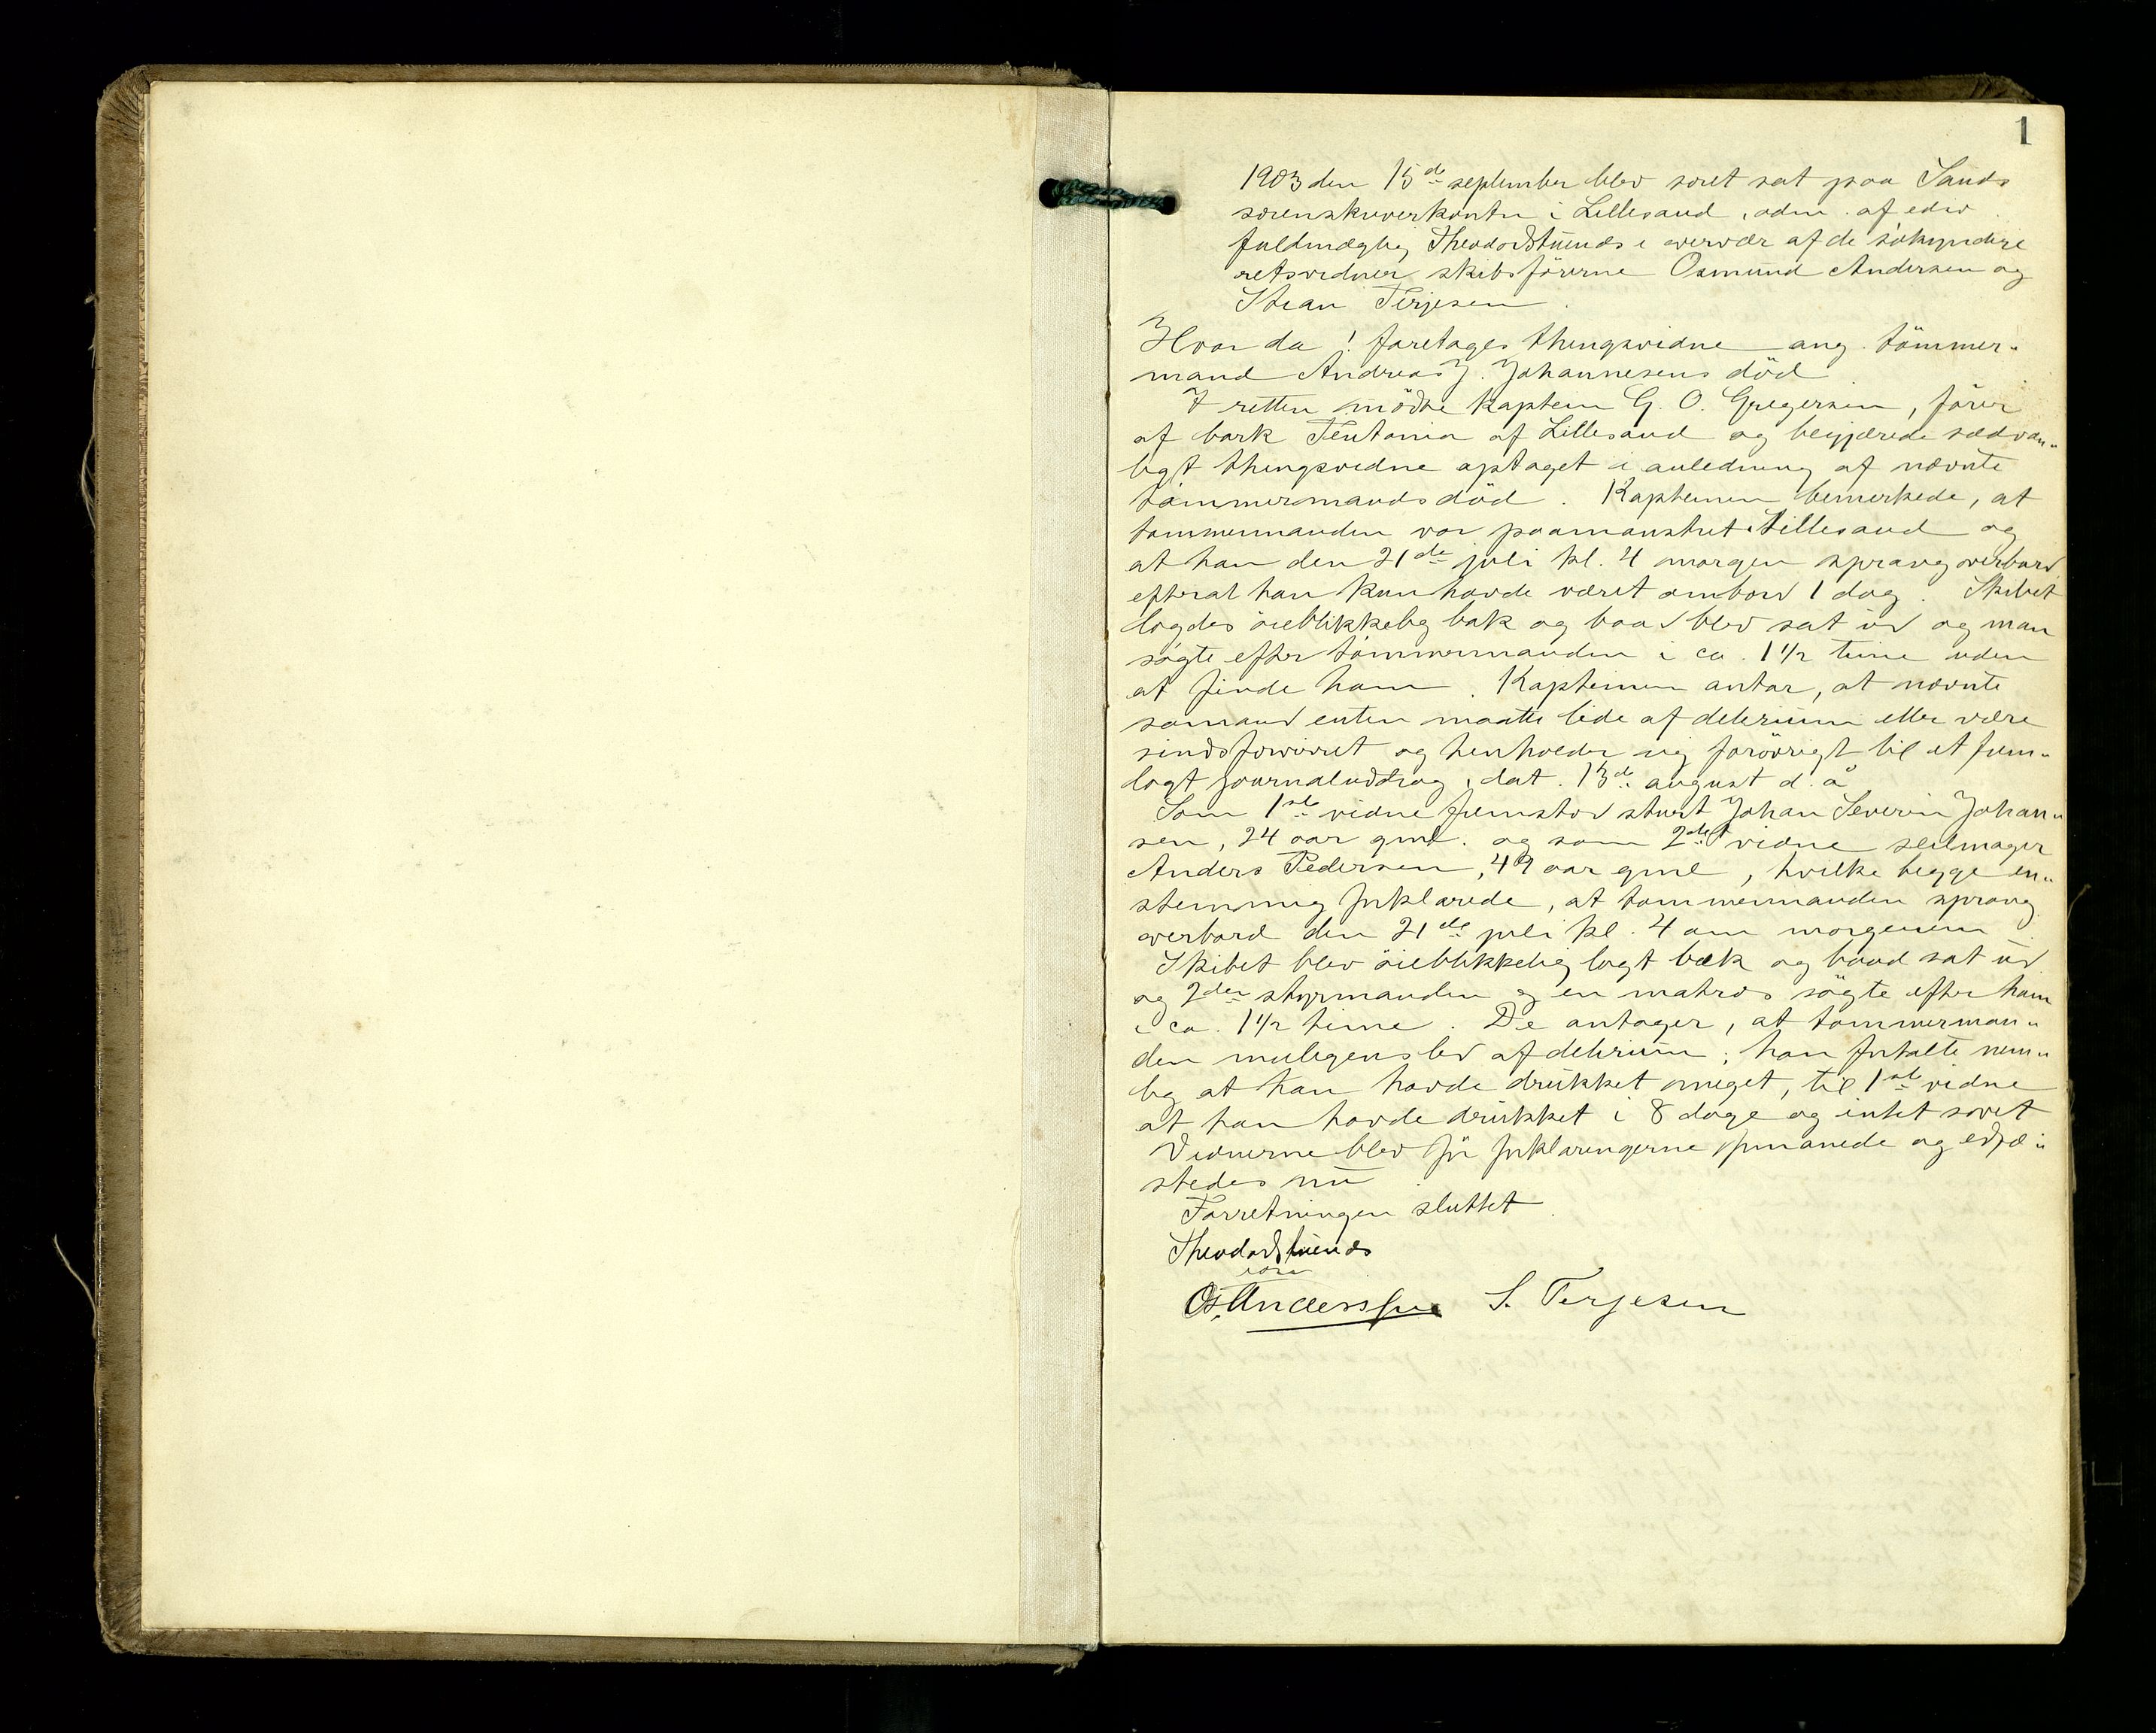 1
1903 den 15de september blev söret sat paa Sands
sorenskriverkontor i Lillesand, adm. af edsv.
fuldmægtig Theodor Stuenæs i overvær af de sökyndige
retsvidner skibsförerne Osmund Andersen og
Stian Terjesen.
Hvor da! foretages thingsvidne ang. tömmer-
mand Andreas J. Johannesens död.
I retten mödte kaptein G. O. Gregersen, förer
af bark Teutonia af Lillesand og begjærede sædvan-
ligt thingsvidne optaget i anledning af nævnte
tömmermands död. Kapteinen bemerkede, at
tömmermanden var paamønstret i Lillesand og
at han den 21de juli kl. 4 morgen sprang overbord
efterat han kun havde været ombord 1 dag. Skibet
lagdes öieblikkelig bak og baad blev sat ud og man
sögte efter tömmermanden i ca. 1 1/2 time uden
at finde ham. Kapteinen antar, at nævnte
sömand enten maatte lide af delirium eller være
sindsforvirret og henholder sig forövrigt til et frem-
lagt journaludtog, dat. 13de august d. å.
Som 1ste vidne fremstod stuert Johan Severin Johan-
sen, 24 aar gml. og som 2det vidne seilmager
Anders Pedersen, 49 aar gml, hvilke begge en-
stemmig forklarede, at tömmermanden sprang
overbord den 21de juli kl. 4 om morgenen.
Skibet blev öieblikkelig lagt bak og baad sat ud
og 2den styrmanden og en matros sögte efter ham
i ca. 1 1/2 time. De antager, at tömmerman-
den muligens led af delirium; han fortalte nem-
lig at han havde drukket meget, til 1ste vidne
at han havde drukket i 8 dage og intet sovet.
Vidnerne blev för forklaringerne formanede og edfæ-
stedes nu.
Forretningen sluttet.
Theodor Stuenæs
edsv.
Os. Anderssen S. Terjesen